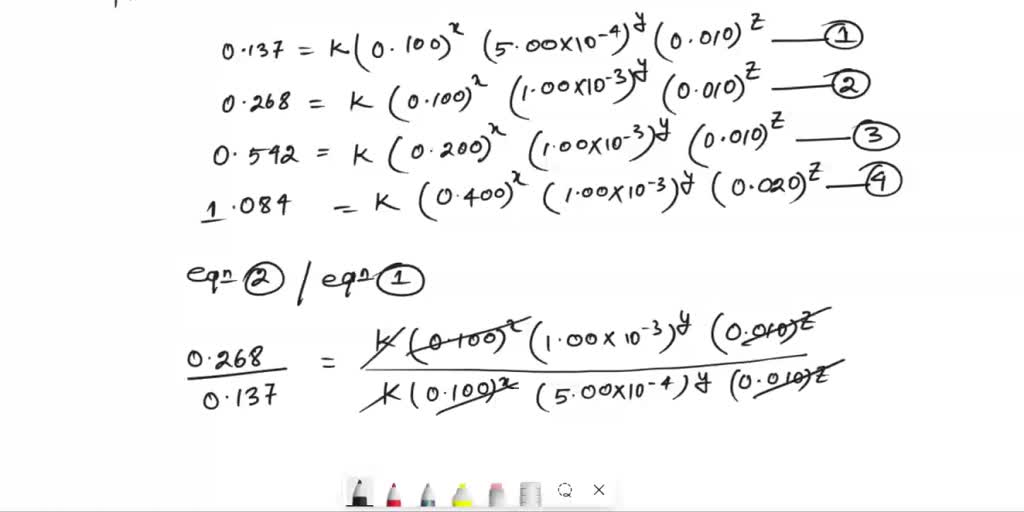 0.137 = K(0.100)^x (5.00×10^-4)^y (0.010)^z — ①
0.268 = K (0.100)^x (1.00×10^-3)^y (0.010)^z — ②
0.542 = K (0.200)^x (1.00×10^-3)^y (0.010)^z — ③
1.084 = K (0.400)^x (1.00×10^-3)^y (0.020)^z — ④
eqn ② / eqn ①
0.268 / 0.137 = K(0.100)^x (1.00×10^-3)^y (0.010)^z / K(0.100)^x (5.00×10^-4)^y (0.010)^z